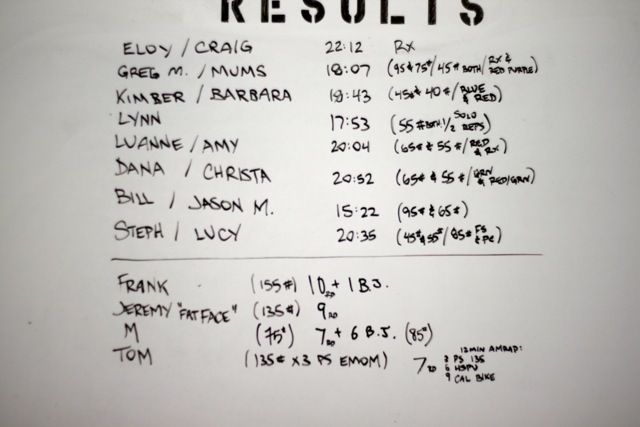 RESULTS
ELOY / CRAIG 22:12 RX
GREG M. / MUMS 18:07 (95# & 75# / 45# BOTH / RX & RED PURPLE)
KIMBER / BARBARA 19:43 (45# & 40# / BLUE & RED)
LYNN 17:53 (55# BOTH, 1/2 SOLO REPS)
LUANNE / AMY 20:04 (65# & 55# / RED & RX)
DANA / CHRISTA 20:52 (65# & 55# / GRN & RED/GRN)
BILL / JASON M. 15:22 (95# & 65#)
STEPH / LUCY 20:35 (45# & 55# / 85# FS & PC)
FRANK (155#) 10 RD + 1 B.J.
JEREMY "FATFACE" (135#) 9 RD
M (75#) 7 RD + 6 B.J. (85#)
TOM (135# X3 PS EMOM) 7 RD
12MIN AMRAP:
PS 135
6 HSPU
9 CAL BIKE